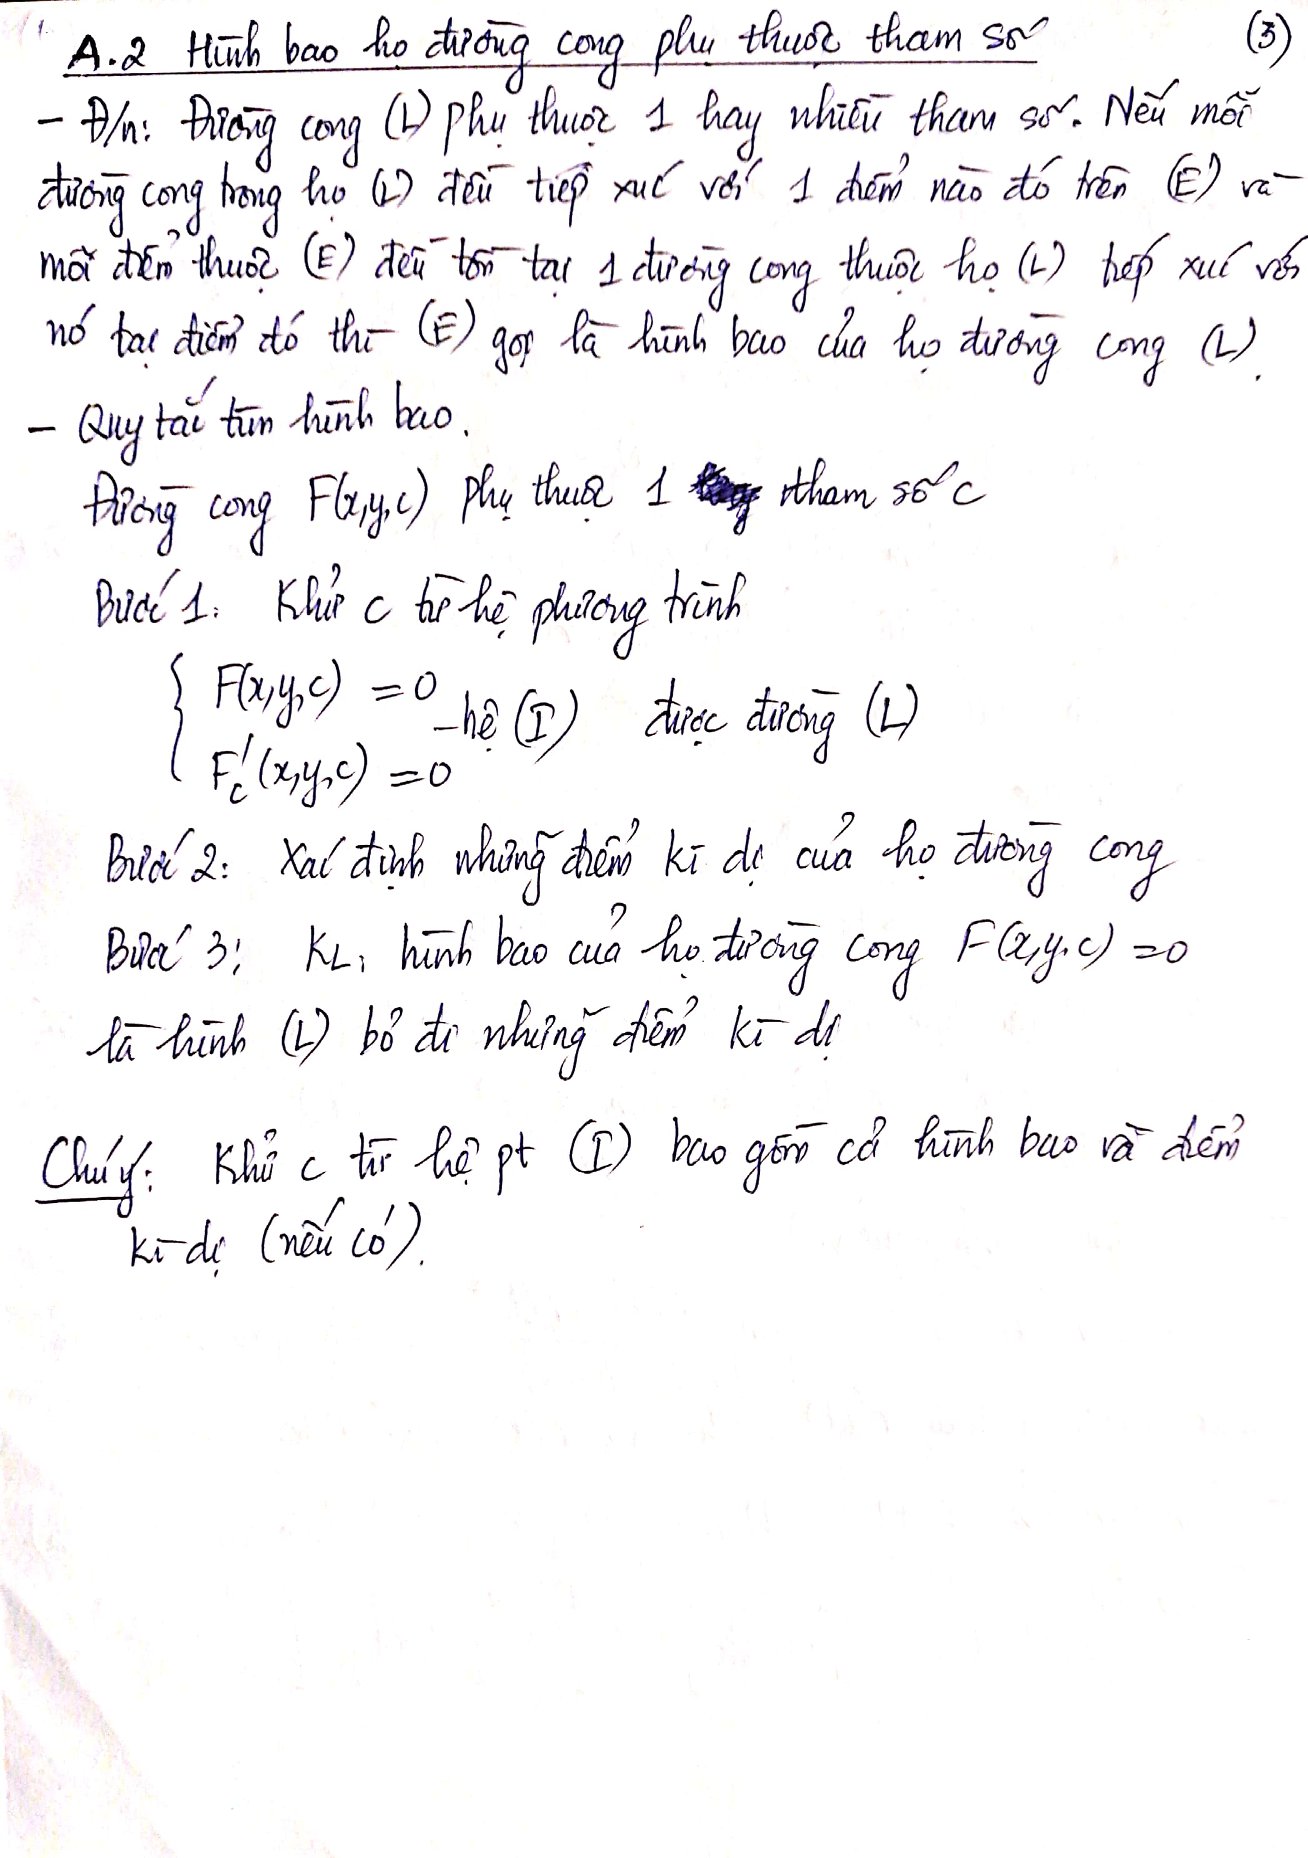 A.2 Hình bao họ đường cong phụ thuộc tham số (3)
- Đ/n: Đường cong (L) phụ thuộc 1 hay nhiều tham số. Nếu mỗi
đường cong trong họ (L) đều tiếp xúc với 1 điểm nào đó trên (E) và
mỗi điểm thuộc (E) đều tồn tại 1 đường cong thuộc họ (L) tiếp xúc với
nó tại điểm đó thì (E) gọi là hình bao của họ đường cong (L).
- Quy tắc tìm hình bao.
Đường cong F(x,y,c) phụ thuộc 1 tham số c
Bước 1: Khử c từ hệ phương trình
F(x,y,c) = 0
- hệ (I) được đường (L)
F'c(x,y,c) = 0
Bước 2: Xác định những điểm kì dị của họ đường cong
Bước 3: KL: hình bao của họ đường cong F(x,y,c) = 0
là hình (L) bỏ đi những điểm kì dị
Chú ý: Khử c từ hệ pt (I) bao gồm cả hình bao và điểm
kì dị (nếu có).